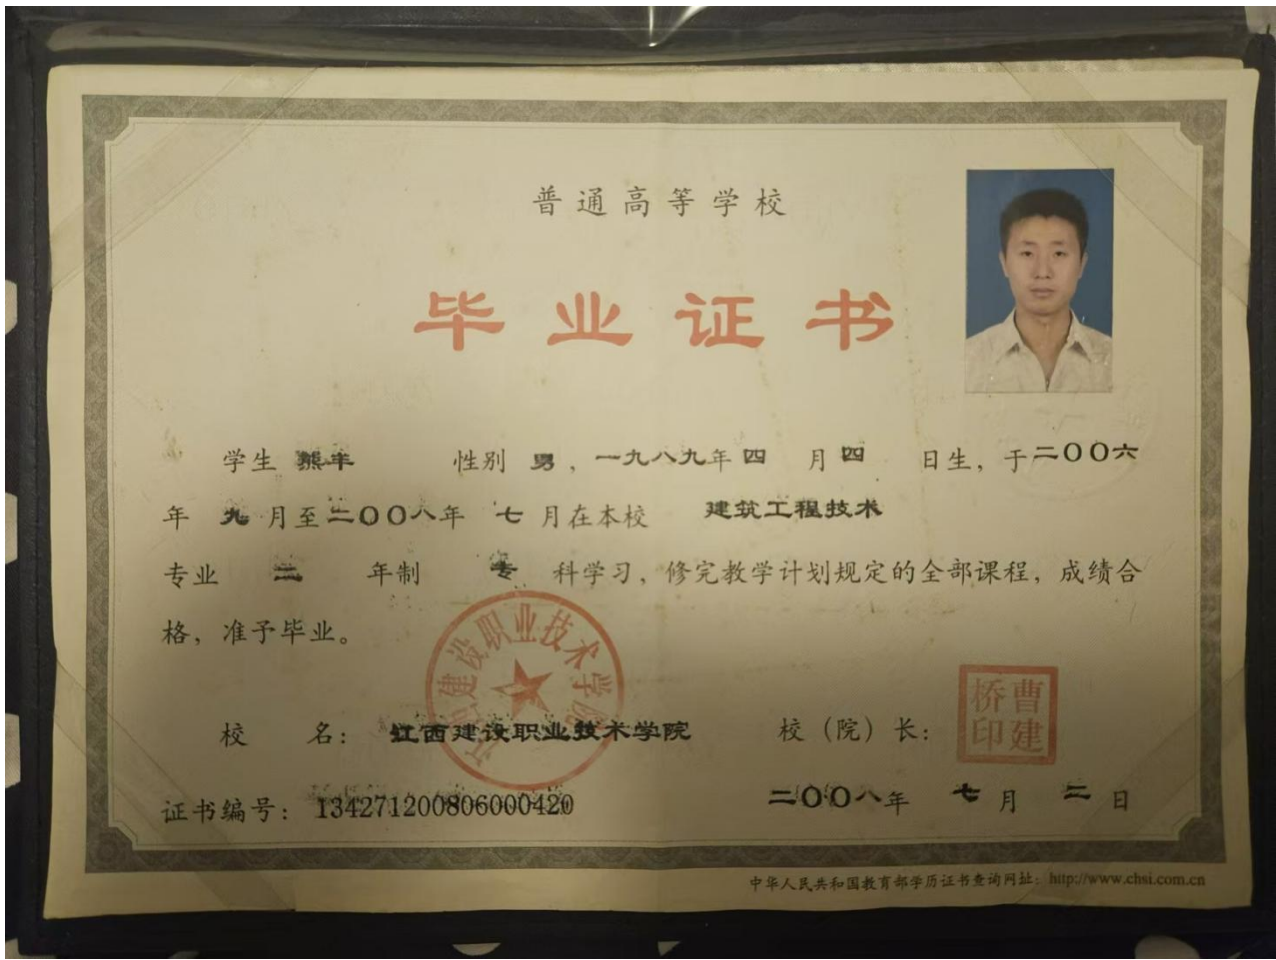 普通高等学校
毕业证书
学生 熊 性别 男，一九八九年四月四日生，于二〇〇六
年九月至二〇〇八年七月在本校 建筑工程技术
专业 二 年制 专 科学习，修完教学计划规定的全部课程，成绩合
格，准予毕业。
江西建设职业技术学院
校 名：江西建设职业技术学院 校（院）长：
曹建桥印
证书编号：134271200806000420 二〇〇八年七月二日
中华人民共和国教育部学历证书查询网址：http://www.chsi.com.cn